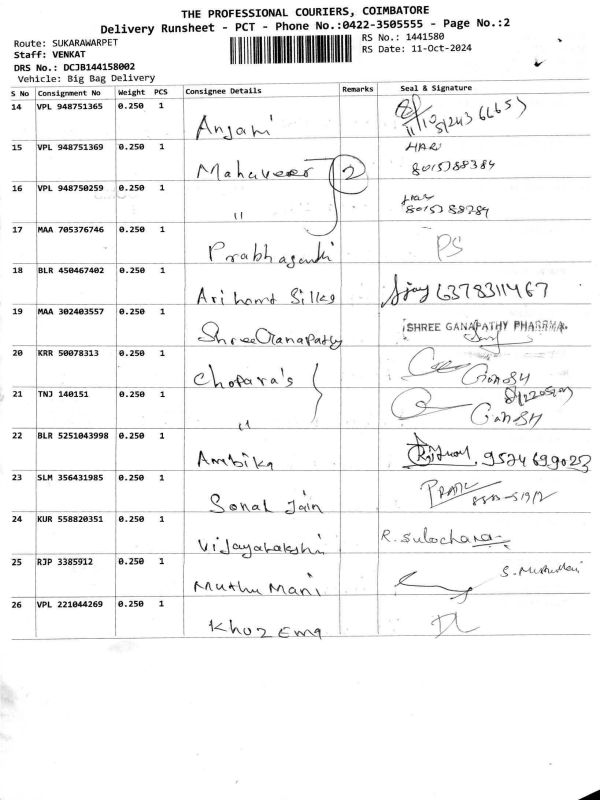 THE PROFESSIONAL COURIERS, COIMBATORE
Delivery Runsheet - PCT - Phone No.:0422-3505555 - Page No.:2
Route: SUKARAWARPET
RS No.: 1441580
Staff: VENKAT
RS Date: 11-Oct-2024
DRS No.: DCJB144158002
Vehicle: Big Bag Delivery
S No Consignment No Weight PCS Consignee Details Remarks Seal & Signature
14 VPL 948751365 0.250 1 Anjani
15 VPL 948751369 0.250 1 Mahaveer 2 HARI 8015388384
16 VPL 948750259 0.250 1 "
17 MAA 705376746 0.250 1 PS
18 BLR 450467402 0.250 1 Arihant Silks Ajay 6378311467
19 MAA 302403557 0.250 1 Shree Ganapathy SHREE GANAPATHY PHARRMA
20 KRR 50078313 0.250 1 Chopara's GANESH
21 TNJ 140151 0.250 1 " GANESH
22 BLR 5251043998 0.250 1 Ambika 9524699023
23 SLM 356431985 0.250 1 Sonal Jain
24 KUR 558820351 0.250 1 Vijayalakshi R. Sulochana
25 RJP 3385912 0.250 1 Muthu Mani
26 VPL 221044269 0.250 1 Khuzema DL